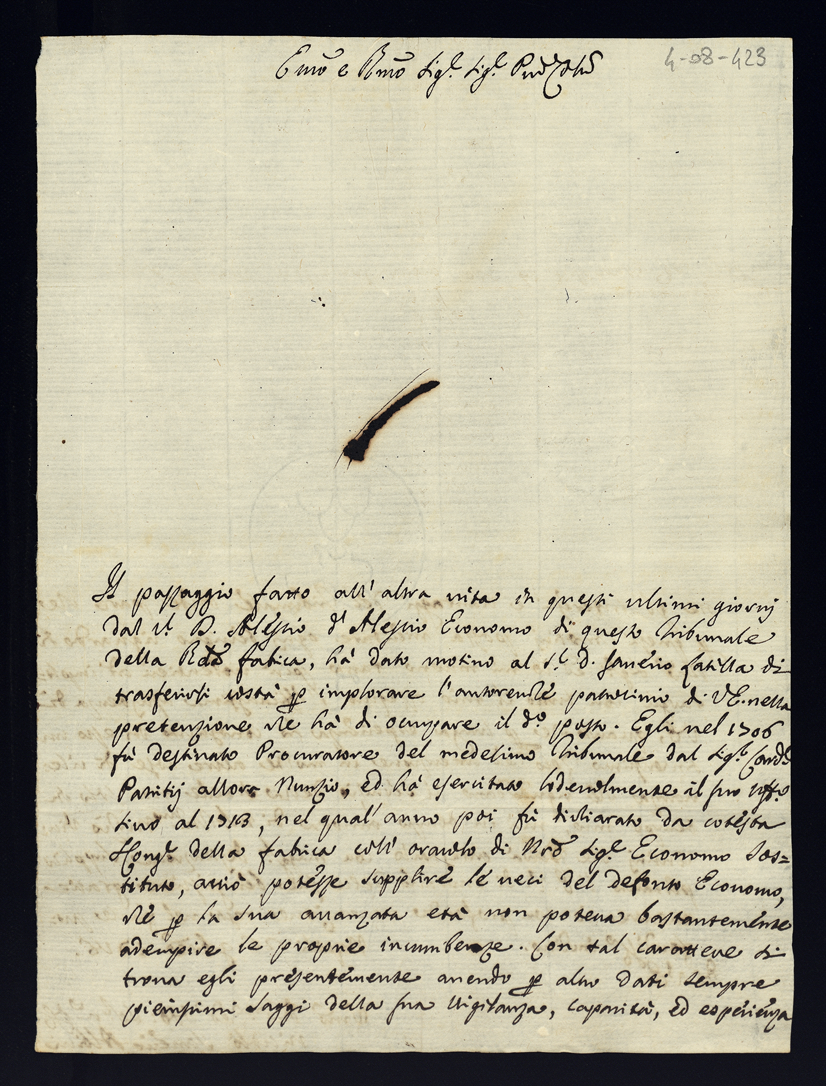 4-08-423
Emo e Rmo Sigr. Sigr. Pne Colmo
Il passaggio fatto all'altra vita in questi ultimi giorni
dal Sr. D. Alessio d'Alessio Economo di questo Tribunale
della Rda fabica, hà dato motivo al Sr. D. Saverio Latilla di
trasferirsi costà p implorare l'autorevole patrocinio di VE. nella
pretenzione che hà di occupare il do. posto. Egli nel 1706
fù destinato Procuratore del medesimo Tribunale dal Sigr. Cardl.
Patritij allora Nunzio, ed hà esercitato lodevolmente il suo uffo.
sino al 1713, nel qual'anno poi fù dichiarato da cotesta
Congne. della fabrica coll'oracolo di Nro Sigre. Economo Sos=
tituto, acciò potesse supplire le veci del defonto Economo,
che p la sua avanzata età non poteva bastantemente
adempire le proprie incumbenze. Con tal carattere si
trova egli presentemente avendo p altro dati sempre
pienissimi saggi della sua vigilanza, capacità, ed esperienza